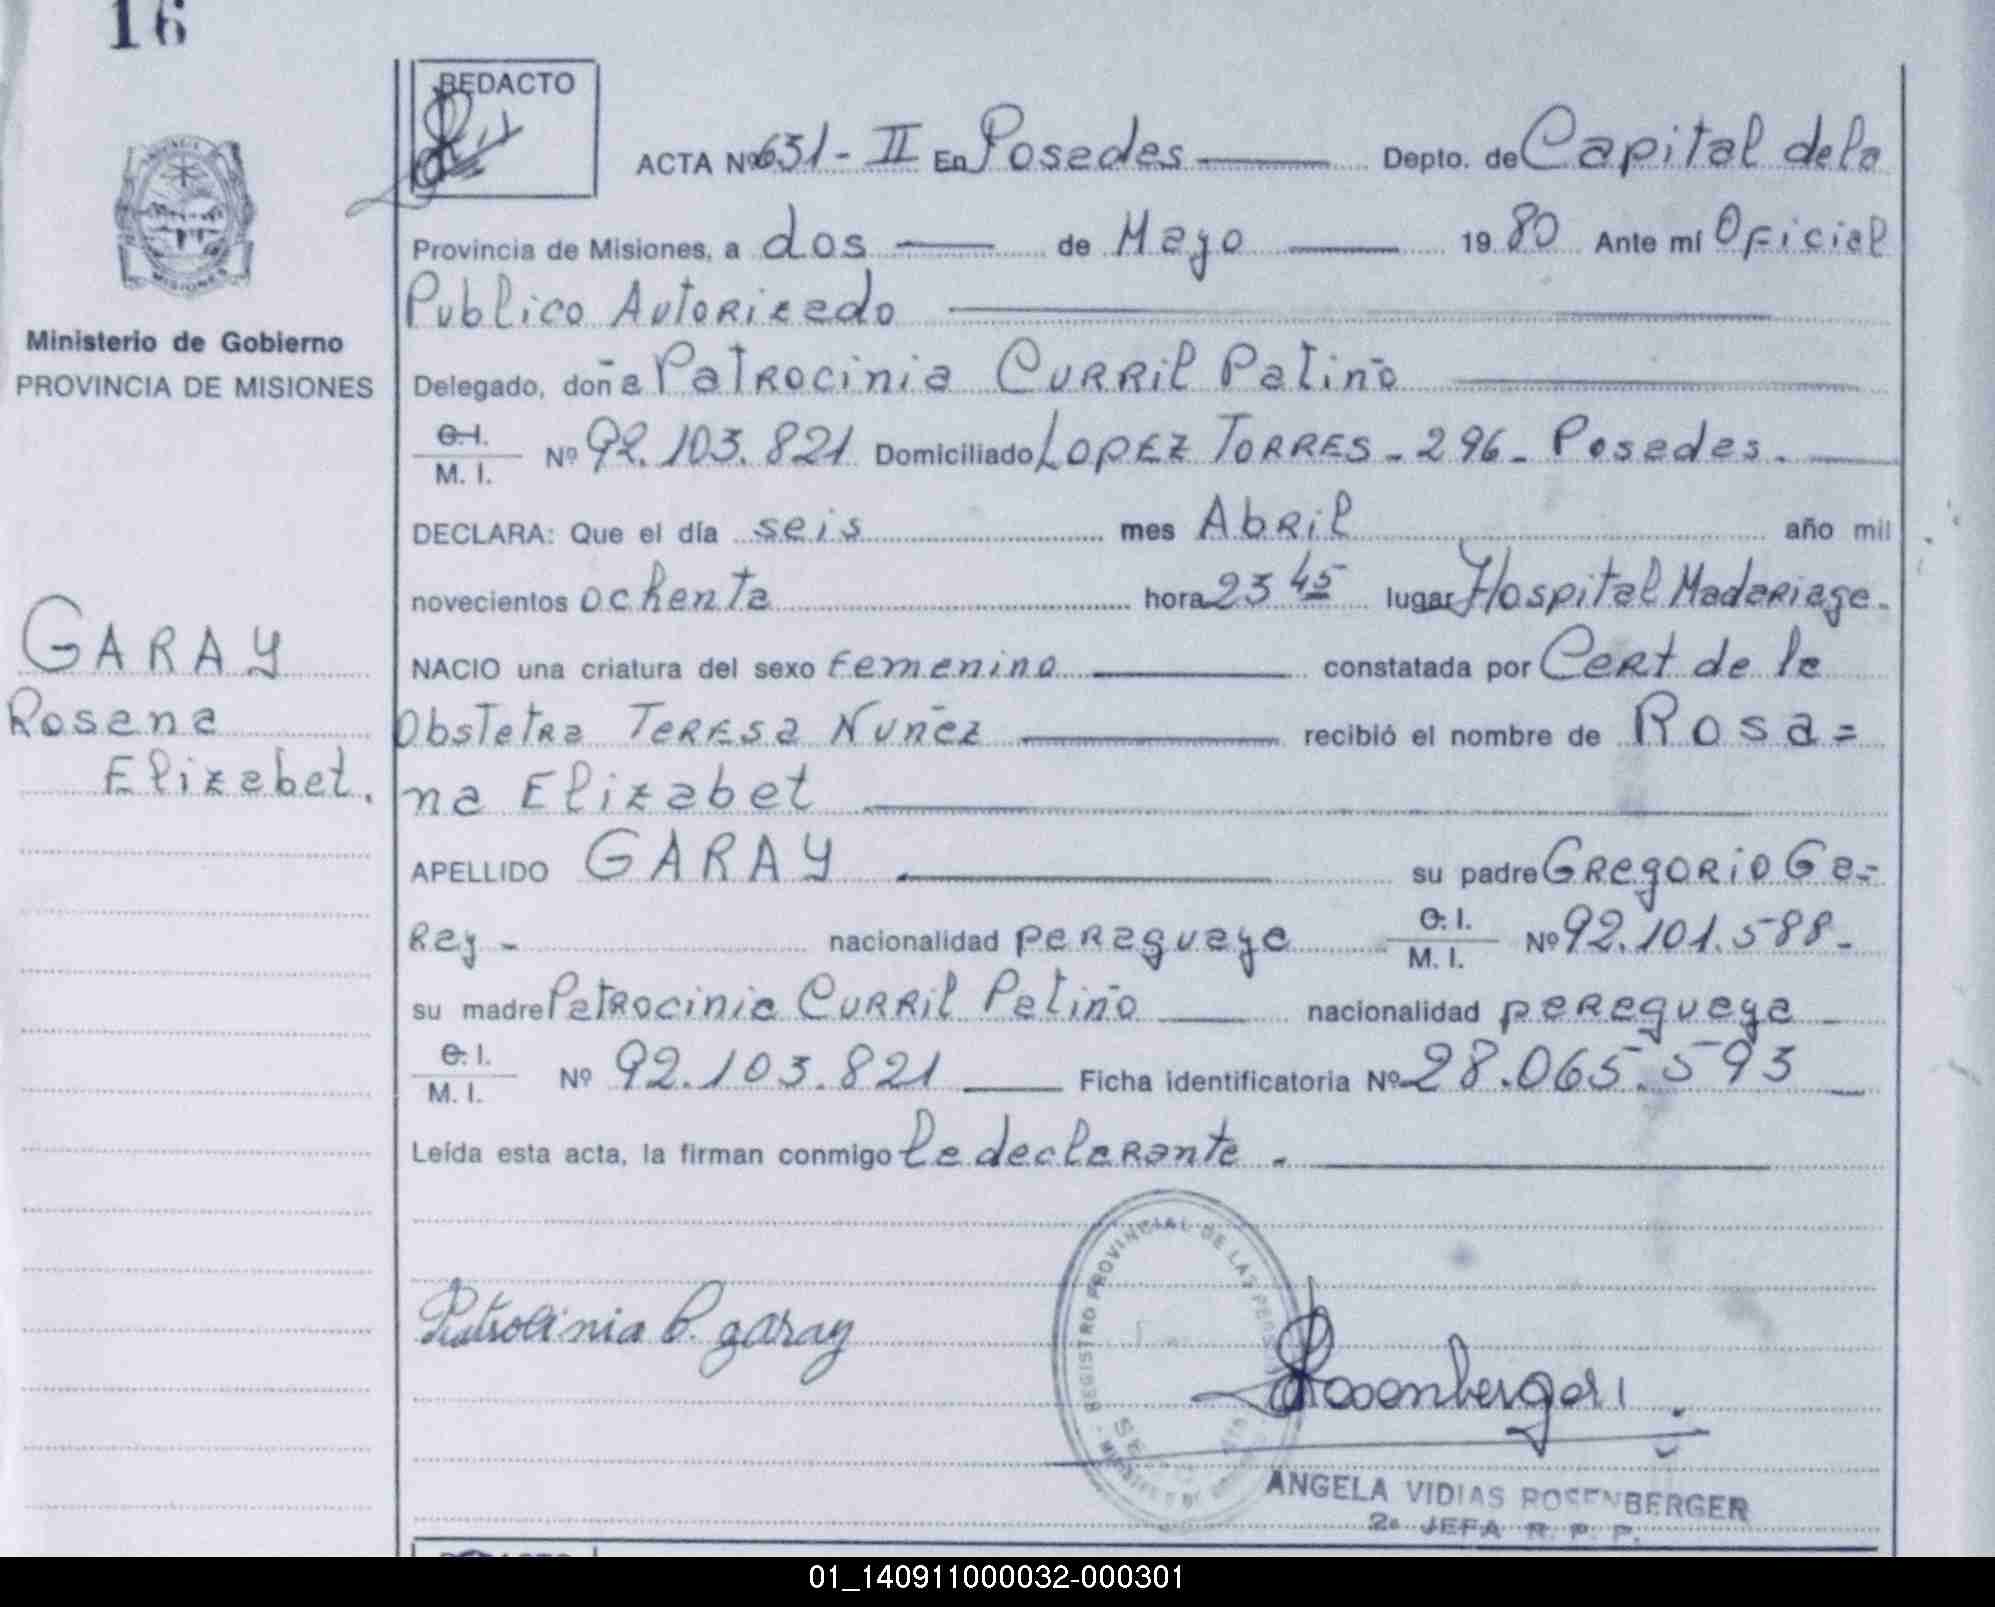 16
REDACTO
ACTA Nº 631-II En Posadas Depto. de Capital de la
Provincia de Misiones, a dos de Mayo 1980 Ante mí Oficial
Publico Autorizado
Delegado, doña Patrocinia Curril Patiño
C.I.
M. I. Nº 92.103.821 Domiciliado LOPEZ TORRES - 296 - Posadas.
DECLARA: Que el día seis mes Abril año mil
novecientos ochenta hora 23 45 lugar Hospital Madariaga.
NACIO una criatura del sexo femenino constatada por Cert de la
Obstetra TERESA Nuñez recibió el nombre de Rosa=
na Elizabet
APELLIDO GARAY su padre GREGORIO Ga-
Ray - nacionalidad paraguaya C.I.
M. I. Nº 92.101.588-
su madre Patrocinia Curril Patiño nacionalidad paraguaya
C.I.
M. I. Nº 92.103.821 Ficha identificatoria Nº 28.065.593
Leída esta acta, la firman conmigo la declarante.
Patrocinia C. garay
REGISTRO PROVINCIAL DE LAS
Rosenberger
ANGELA VIDIAS ROSENBERGER
2a JEFA R. P. P.
MISIONES
Ministerio de Gobierno
PROVINCIA DE MISIONES
GARAY
Rosana
Elizabet.
01_140911000032-000301